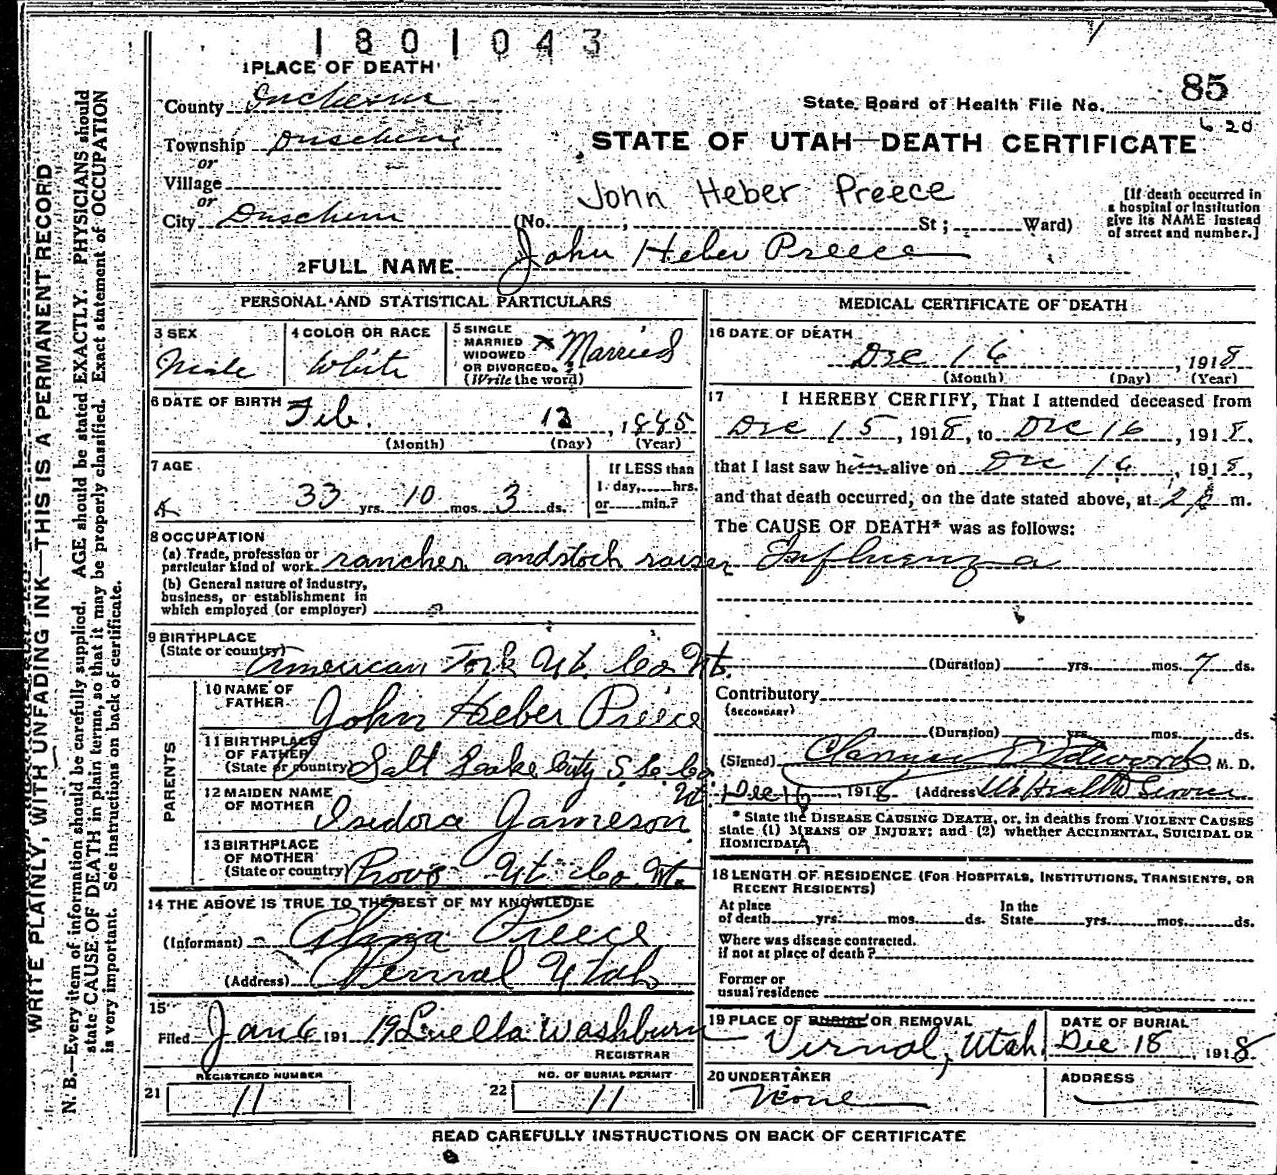 1801043
1 PLACE OF DEATH
85
County Duchesne
State Board of Health File No.
6 20
Township Duschene
STATE OF UTAH—DEATH CERTIFICATE
or
Village
John Heber Preece
or
City Duschene (No. , St; Ward)
[If death occurred in
a hospital or institution
give its NAME instead
of street and number.]
2 FULL NAME John Heber Preece
PERSONAL AND STATISTICAL PARTICULARS
3 SEX
Male
4 COLOR OR RACE
White
5 SINGLE
MARRIED
WIDOWED
OR DIVORCED.
(Write the word)
x Married
6 DATE OF BIRTH
Feb. 13, 1885
(Month) (Day) (Year)
7 AGE
33 yrs. 10 mos. 3 ds.
If LESS than
1 day, hrs.
or min.?
8 OCCUPATION
(a) Trade, profession or
particular kind of work rancher and stock raiser
(b) General nature of industry,
business, or establishment in
which employed (or employer)
9 BIRTHPLACE
(State or country)
American Fork Ut. Co Ut.
PARENTS
10 NAME OF
FATHER
John Heber Preece
11 BIRTHPLACE
OF FATHER
(State or country) Salt Lake City S. L. Co.
Ut.
12 MAIDEN NAME
OF MOTHER
Isidora Jameson
13 BIRTHPLACE
OF MOTHER
(State or country) Provo Ut. Co. Ut.
14 THE ABOVE IS TRUE TO THE BEST OF MY KNOWLEDGE
(Informant) Preece
(Address) Vernal Utah
15
Filed Jan 6 191 19 Luella Washburn
REGISTRAR
REGISTERED NUMBER
21 11
NO. OF BURIAL PERMIT
22 11
MEDICAL CERTIFICATE OF DEATH
16 DATE OF DEATH
Dec 16, 1918
(Month) (Day) (Year)
17 I HEREBY CERTIFY, That I attended deceased from
Dec 15, 1918, to Dec 16, 1918.
that I last saw him alive on Dec 16, 1918,
and that death occurred, on the date stated above, at m.
The CAUSE OF DEATH* was as follows:
Influenza
(Duration) yrs. mos. 7 ds.
Contributory
(SECONDARY)
(Duration) yrs. mos. ds.
(Signed) Edwards, M. D.
Dec 16, 1918 (Address) Health Service
* State the DISEASE CAUSING DEATH, or, in deaths from VIOLENT CAUSES
state (1) MEANS OF INJURY; and (2) whether ACCIDENTAL, SUICIDAL OR
HOMICIDAL
18 LENGTH OF RESIDENCE (FOR HOSPITALS, INSTITUTIONS, TRANSIENTS, OR
RECENT RESIDENTS)
At place
of death yrs. mos. ds.
In the
State yrs. mos. ds.
Where was disease contracted.
if not at place of death?
Former or
usual residence
19 PLACE OF BURIAL OR REMOVAL
Vernal, Utah
DATE OF BURIAL
Dec 18, 1918
20 UNDERTAKER
None
ADDRESS
READ CAREFULLY INSTRUCTIONS ON BACK OF CERTIFICATE
WRITE PLAINLY, WITH UNFADING INK—THIS IS A PERMANENT RECORD
N. B.—Every item of information should be carefully supplied. AGE should be stated EXACTLY. PHYSICIANS should
state CAUSE OF DEATH in plain terms, so that it may be properly classified. Exact statement of OCCUPATION
is very important. See instructions on back of certificate.